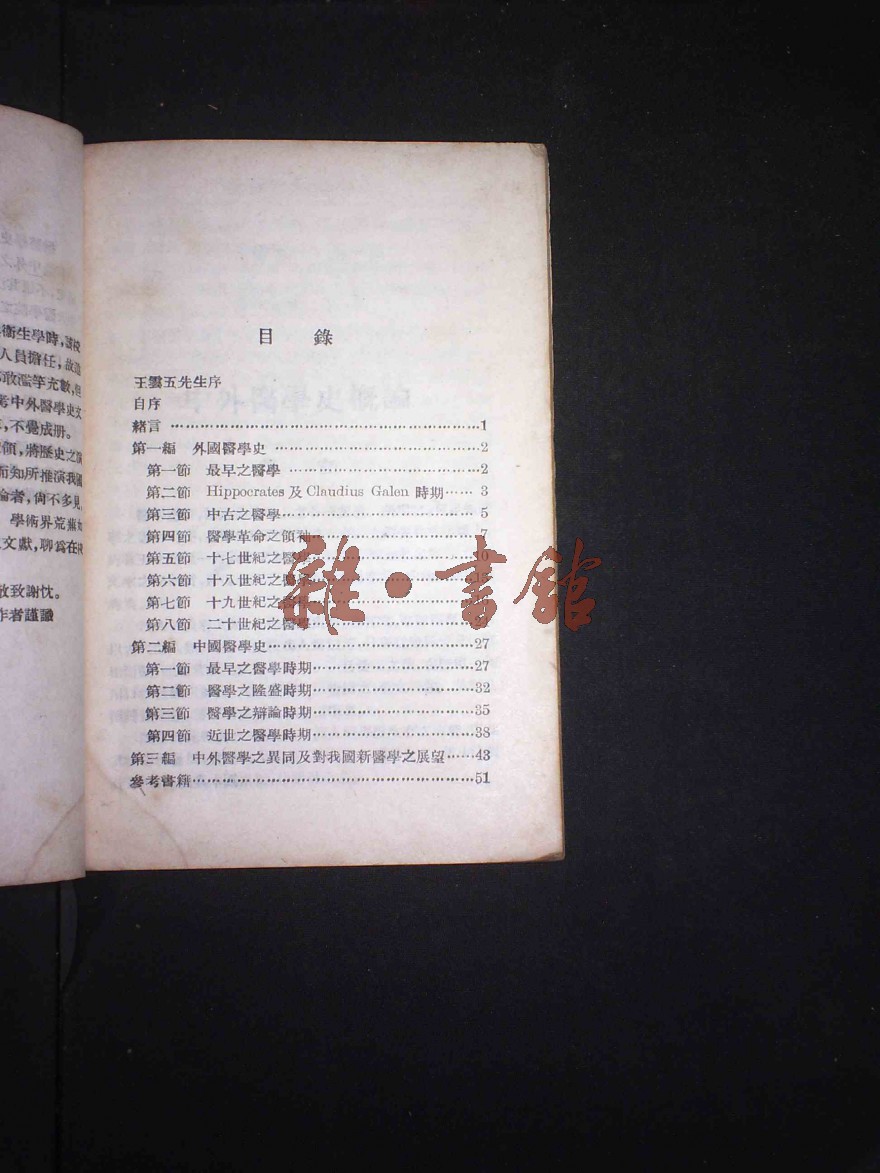 衞生學時,
人員擔任,故
敢濫竽充數,但
考中外醫學史文
,不覺成册。
領,將歷史之演
而知所推演我國
論者,尙不多見,
學術界荒蕪
文獻,聊爲在
敬致謝忱。
作者謹識
目 錄
王雲五先生序
自序
緒言 ……1
第一編 外國醫學史 ……2
第一節 最早之醫學……2
第二節 Hippocrates及Claudius Galen時期……3
第三節 中古之醫學……5
第四節 醫學革命之領袖……7
第五節 十七世紀之醫學……10
第六節 十八世紀之醫學……
第七節 十九世紀之醫學……
第八節 二十世紀之醫學……
第二編 中國醫學史……27
第一節 最早之醫學時期……27
第二節 醫學之隆盛時期……32
第三節 醫學之辯論時期……35
第四節 近世之醫學時期……38
第三編 中外醫學之異同及對我國新醫學之展望……43
參考書籍……51
雜·書館